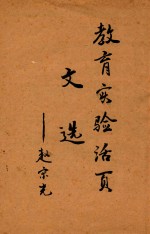 教育实验活页
文选
——赵宗光